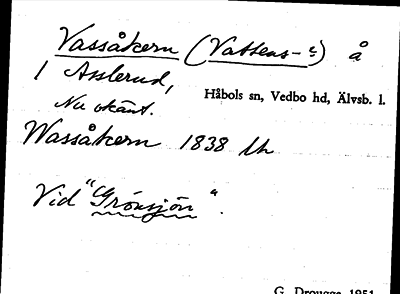 Vassåkern (Vattens- ) å
1 Asslerud,
Håbols sn, Vedbo hd, Älvsb. l.
Nu okänt.
Wassåkern 1838 Lh
Vid "Grönsjön".
G. Drougge 1951